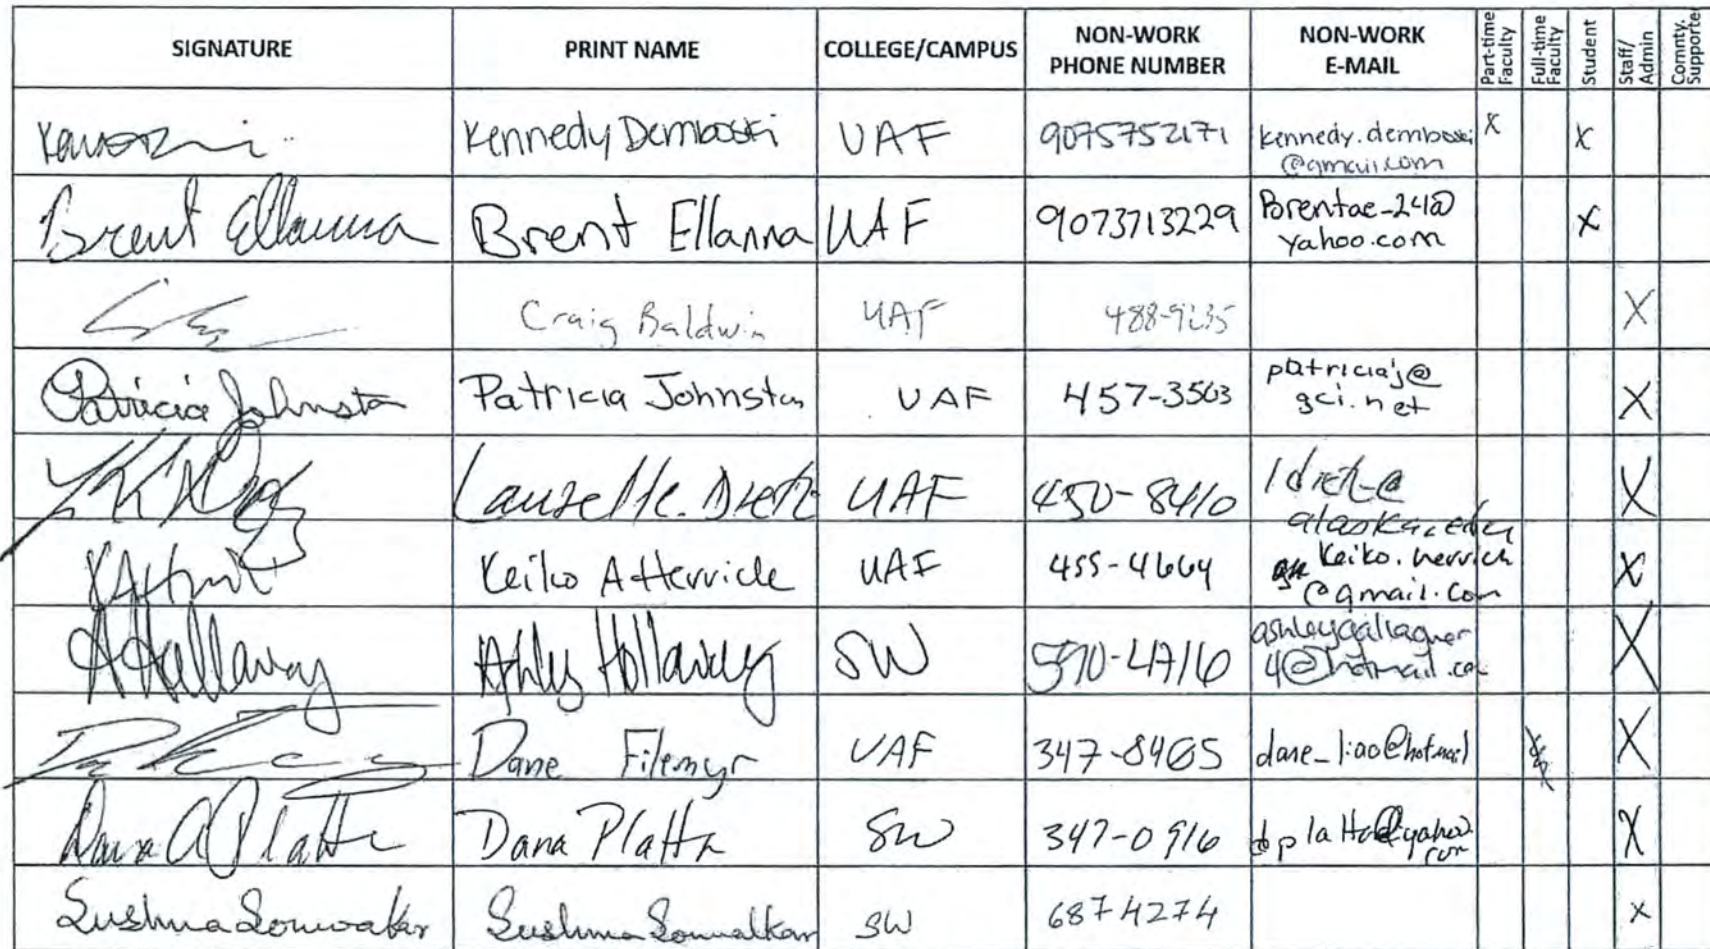 SIGNATURE PRINT NAME COLLEGE/CAMPUS NON-WORK PHONE NUMBER NON-WORK E-MAIL Part-time Faculty Full-time Faculty Student Staff/ Admin Comnty. Supporte
Kennedy Demboski UAF 9075752171 kennedy.demboski @gmail.com X X
Brent Ellanna Brent Ellanna UAF 9073713229 Brentae_24@ yahoo.com X
Craig Baldwin UAF X
Patricia Johnston Patricia Johnston UAF 457-3503 patriciaj@ gci.net X
UAF 450-8410 alaska.edu X
Keiko A Herrick UAF 455-4664 Keiko.herrick @gmail.com X
A Hallaway SW 590-4716 ashleygallagher 4@hotmail.co X
Dane Filemyr UAF 347-8465 dane_liao@hotmail X
Dana A Platta Dana Platta SW 347-0916 X
Sushma Sonwalkar Sushma Sonwalkar SW 687 4274 X